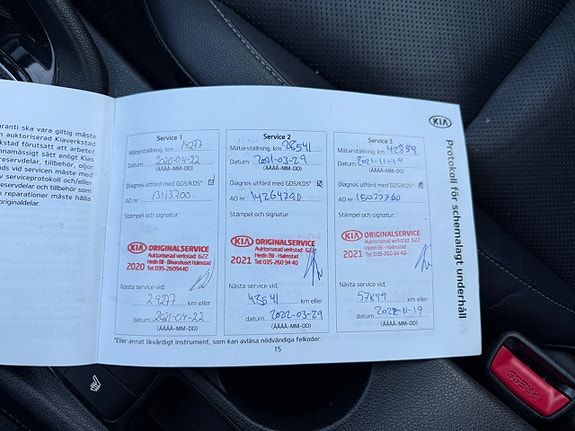 aranti ska vara giltig måste
n auktoriserad Kiaverkstad
förutsatt att arbetet
nnamässigt sätt enligt Kias
reservdelar, tillbehör, oljor
nds vid servicen måste med
serviceprotokoll och/eller
reservdelar och tillbehör som
n reparationer måste hålla
originaldelar.
KIA
Protokoll för schemalagt underhåll
Service 1
Mätarställning, km 14277
Datum 2020-04-22
(ÅÅÅÅ-MM-DD)
Diagnos utförd med GDS/KDS*
AO nr 13113700
Stämpel och signatur:
KIA ORIGINALSERVICE
Auktoriserad verkstad: 622
Hedin Bil - Bilkarusellen Halmstad
2020 Tel: 035-2609440
Nästa service vid,
29277 km eller
datum 2021-04-22
(ÅÅÅÅ-MM-DD)
Service 2
Mätarställning, km 28541
Datum 2021-03-29
(ÅÅÅÅ-MM-DD)
Diagnos utförd med GDS/KDS*
AO nr 14264790
Stämpel och signatur:
KIA ORIGINALSERVICE
Auktoriserad verkstad: 622
Hedin Bil - Halmstad
2021 Tel: 035-260 94 40
Nästa service vid,
43541 km eller
datum 2022-03-29
(ÅÅÅÅ-MM-DD)
Service 3
Mätarställning, km 42859
Datum 2021-11-19
(ÅÅÅÅ-MM-DD)
Diagnos utförd med GDS/KDS*
AO nr 15077760
Stämpel och signatur:
KIA ORIGINALSERVICE
Auktoriserad verkstad: 622
Hedin Bil - Halmstad
2021 Tel: 035-260 94 40
Nästa service vid,
57859 km eller
datum 2022-11-19
(ÅÅÅÅ-MM-DD)
*Eller annat likvärdigt instrument, som kan avläsa nödvändiga felkoder.
15
PRESS